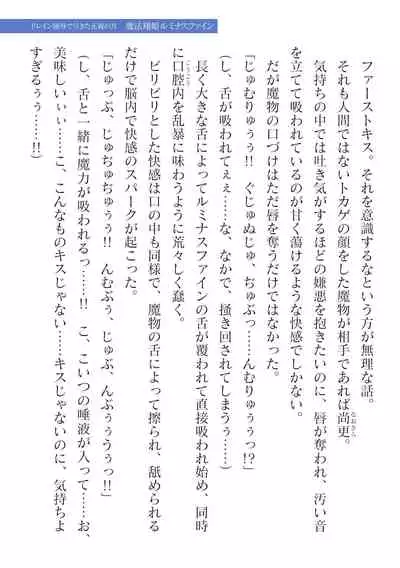 魔法翔姫ルミナスファイン
ファーストキス。それを意識するなという方が無理な話。
それも人間ではないトカゲの顔をした魔物が相手であれば尚更。
気持ちの中では吐き気がするほどの嫌悪を抱きたいのに、唇が奪われ、汚い音
を立てて吸われているのが甘く蕩けるような快感でしかない。
だが魔物の口づけはただ唇を奪うだけではなかった。
「じゅむりゅぅぅっ!! ぐじゅぬじゅ、ぢゅぶっ……んむりゅぅぅっ!?」
(し、舌が吸われてぇぇ……な、なかで、掻き回されてしまうぅ……)
長く大きな舌によってルミナスファインの舌が覆われて直接吸われ始め、同時
に口腔内を乱暴に味わうように荒々しく蠢く。
ビリビリとした快感は口の中も同様で、魔物の舌によって擦られ、舐められる
だけで脳内で快感のスパークが起こった。
「じゅっぷ、じゅぢゅぢゅぅぅ!! んむぶぅ、じゅぶ、んぶぅぅううっ!!」
(し、舌と一緒に魔力が吸われるっ……!! こ、こいつの唾液が入って……お、
美味しいぃぃ……こ、こんなものキスじゃない……キスじゃないのに、気持ちよ
すぎるぅぅ……!!)